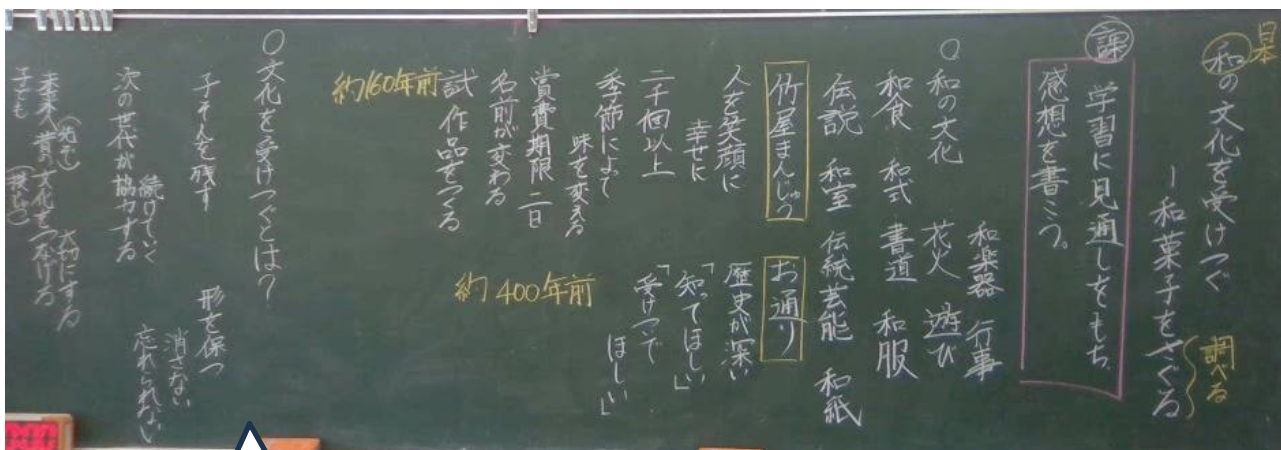 日本
和の文化を受けつぐ
ー和菓子をさぐる
調べる
課
学習に見通しをもち、
感想を書こう。
○和の文化
和楽器 行事
花火 遊び
和食 和式 書道 和服
伝説 和室 伝統芸能 和紙
竹屋まんじゅう
人を笑顔に
幸せに
二千個以上
季節によって
味を変える
賞費期限 二日
名前が変わる
試作品をつくる
約160年前
お通り
歴史が深い
「知ってほしい」
「受けついで
ほしい」
約400年前
○文化を受けつぐとは？
子そんを残す
続けていく
次の世代が協力する
大切にする
(先も)
未来へ昔の文化をつなげる
子ども
形を保つ
消さない
忘れられない